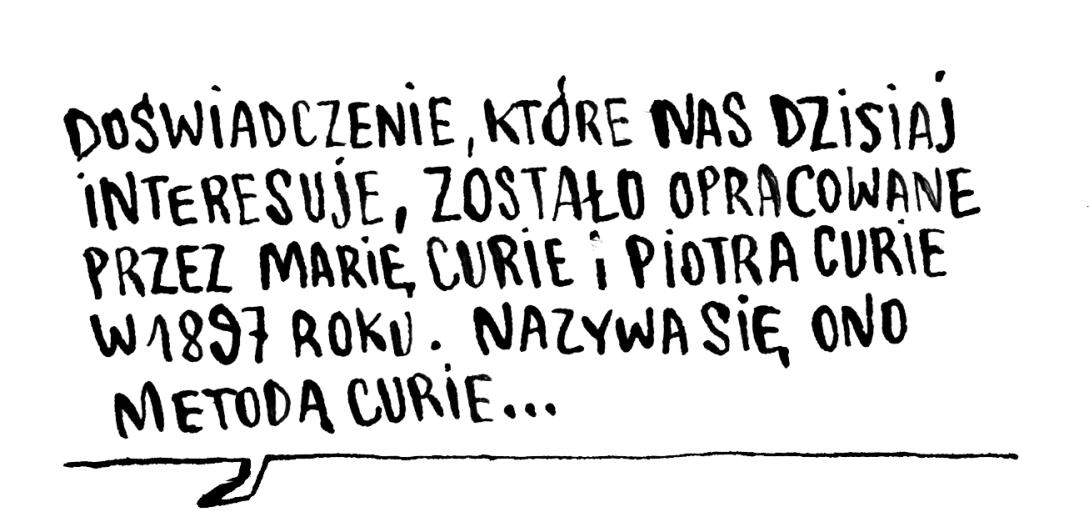 DOŚWIADCZENIE, KTÓRE NAS DZISIAJ
INTERESUJE, ZOSTAŁO OPRACOWANE
PRZEZ MARIĘ CURIE i PIOTRA CURIE
W 1897 ROKU. NAZYWA SIĘ ONO
METODĄ CURIE...